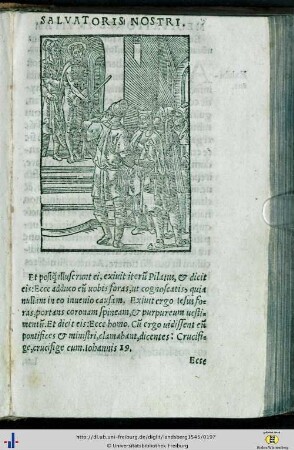 SALVATORIS NOSTRI.
Et postq̃ illuserunt ei, exiuit iterũ Pilatus, & dicit
eis: Ecce adduco eũ uobis foras, ut cognoscatis, quia
nullam in eo inuenio causam. Exiuit ergo Iesus fo-
ras, portans coronam spineam, & purpureum uesti-
mentũ. Et dicit eis: Ecce homo. Cũ ergo uidissent eũ
pontifices & ministri, clamabant, dicentes: Crucifi-
ge, crucifige eum. Iohannis 19.
Ecce
http://dl.ub.uni-freiburg.de/diglit/landsberg1545/0197
© Universitätsbibliothek Freiburg